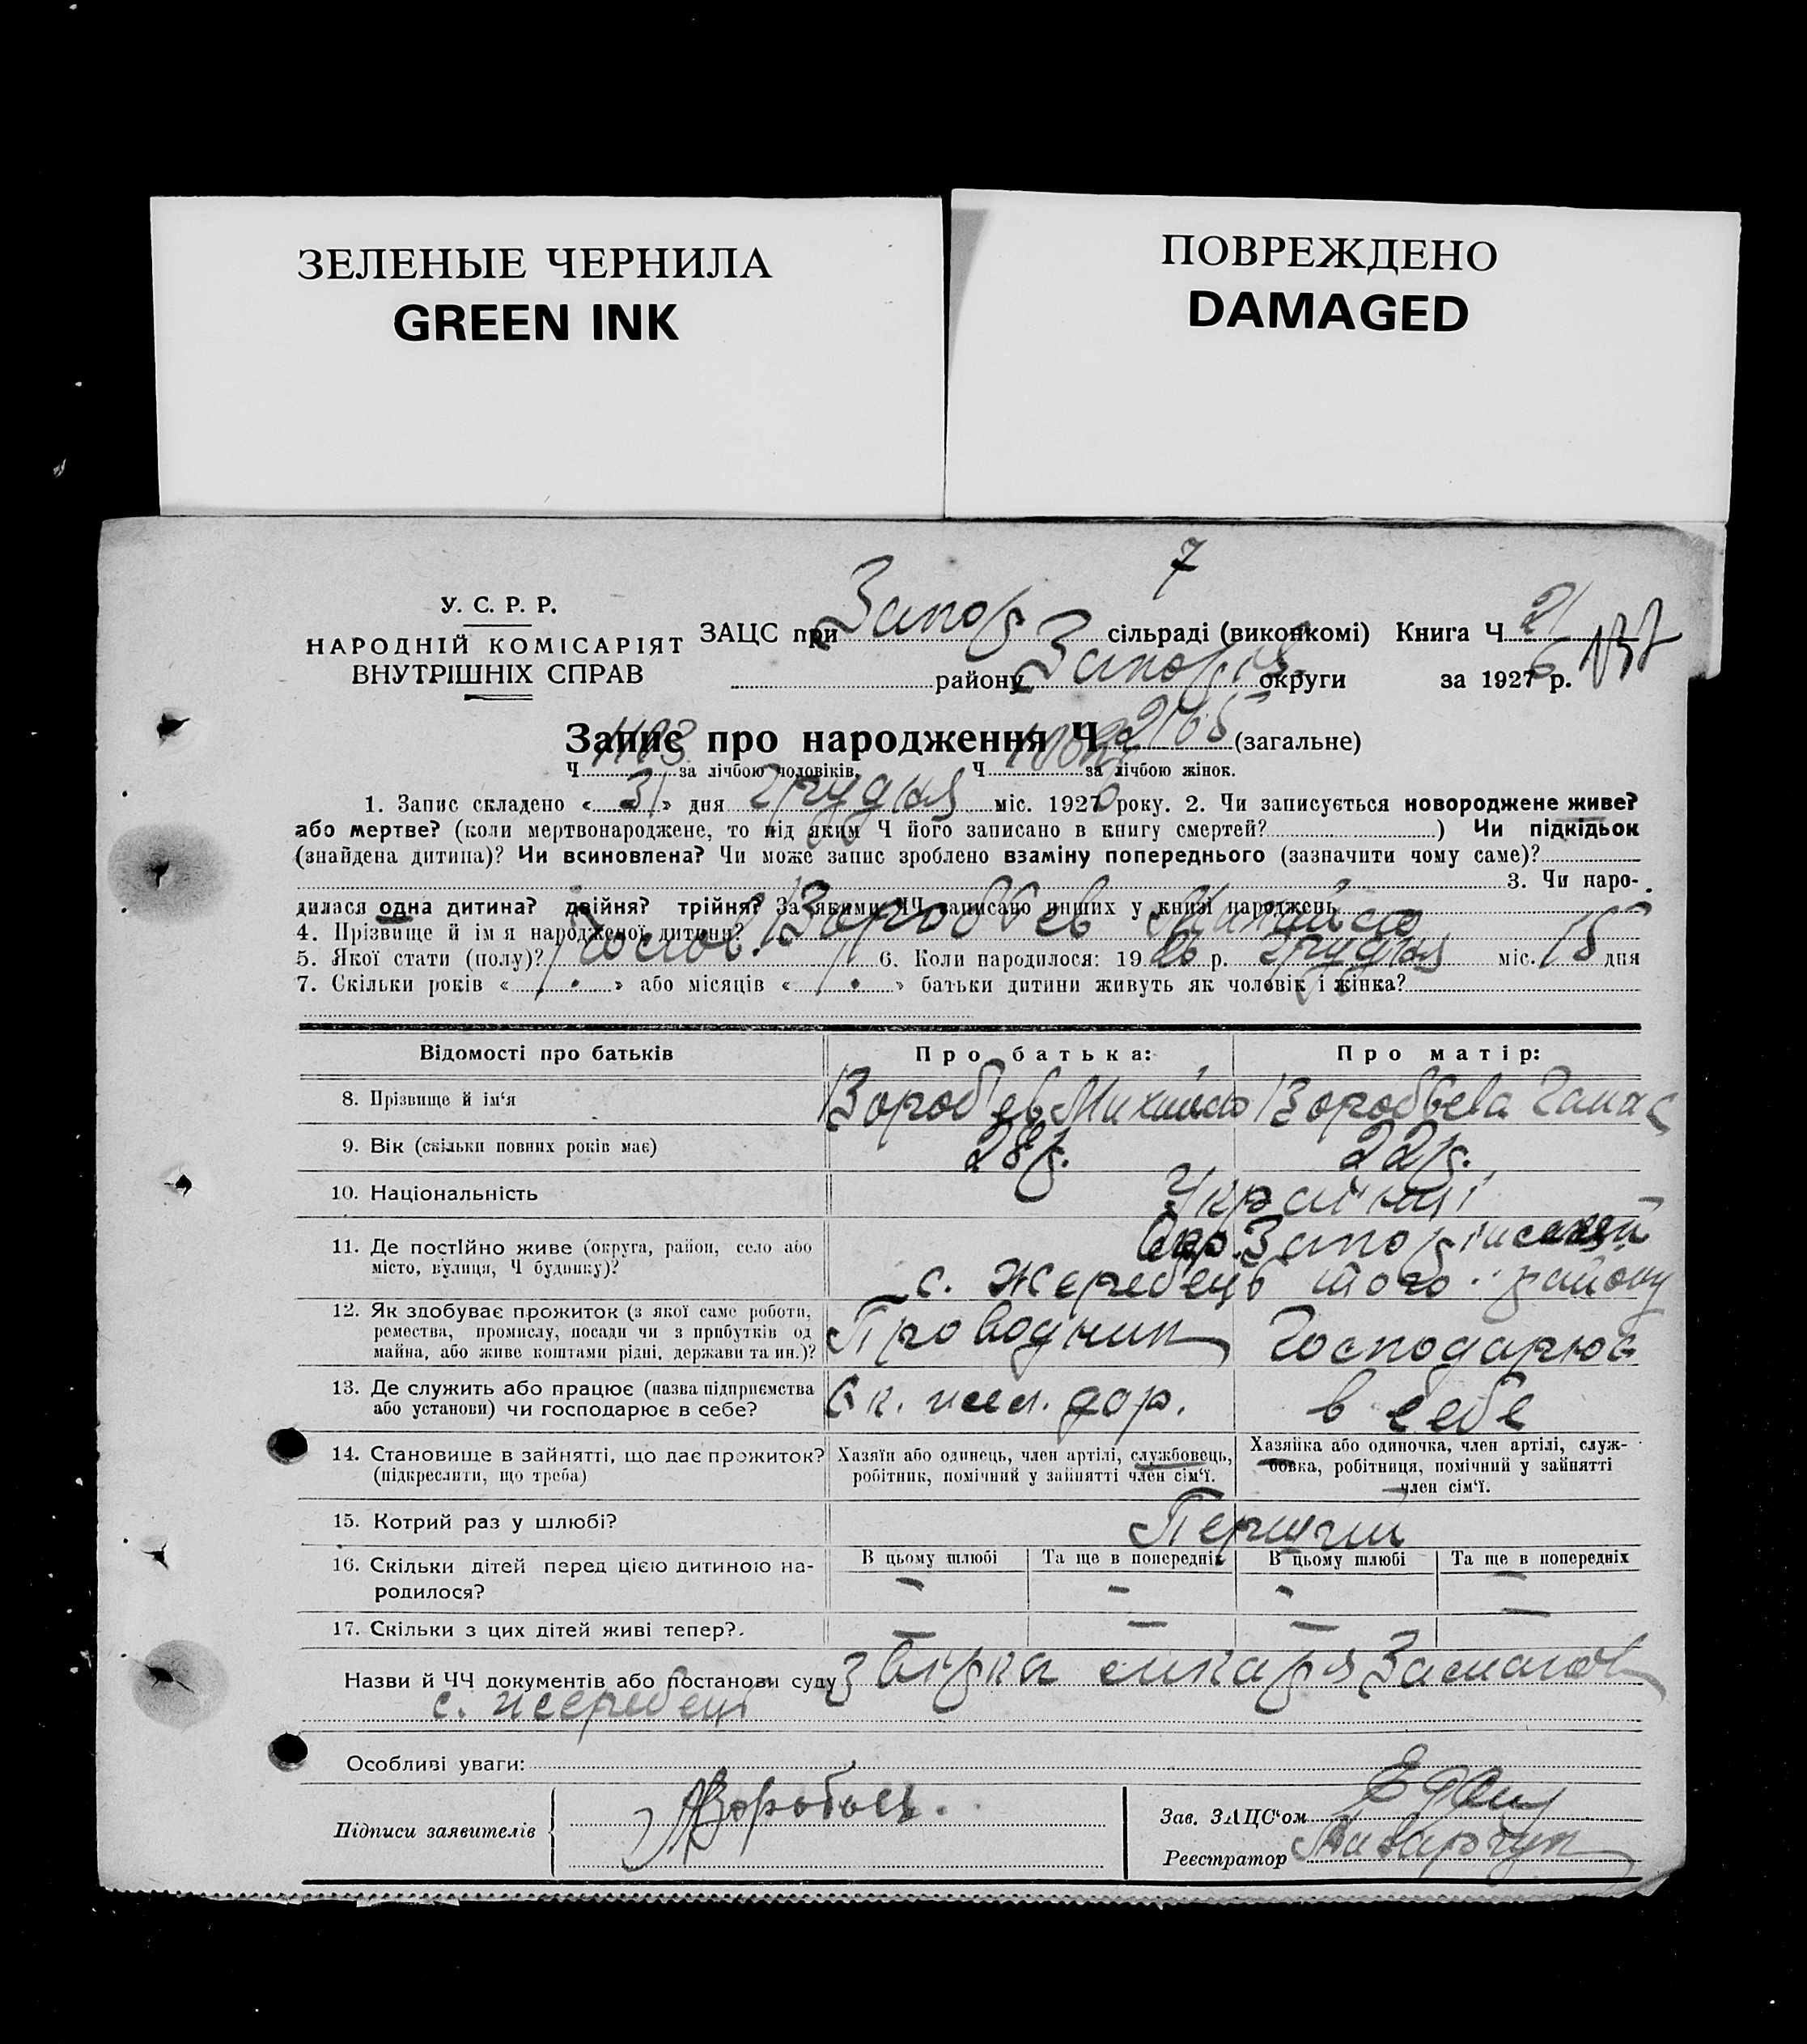 ЗЕЛЕНЫЕ ЧЕРНИЛА
GREEN INK
ПОВРЕЖДЕНО
DAMAGED
7
У. С. Р. Р.
НАРОДНІЙ КОМІСАРІЯТ
ВНУТРІШНІХ СПРАВ
ЗАЦС при Запор сільраді (виконкомі) Книга Ч 21 137
району Запоріз округи за 1926 р.
Запис про народження Ч 2165 (загальне)
Ч 1103 за лічбою чоловіків. Ч за лічбою жінок.
1. Запис складено « 31 » дня Грудня міс. 1926 року. 2. Чи записується новороджене живе?
або мертве? (коли мертвонароджене, то під яким Ч його записано в книгу смертей? ) Чи підкідьок
(знайдена дитина)? Чи всиновлена? Чи може запис зроблено взаміну попереднього (зазначити чому саме)?
3. Чи наро-
дилася одна дитина? двійня? трійня? За якими ЧЧ записано инших у книзі народжень
4. Прізвище й ім'я народженої дитини? Воробйев Михайло
5. Якої стати (полу)? Чолов. 6. Коли народилося: 1926 р. Грудня міс. 15 дня
7. Скільки років « » або місяців « » батьки дитини живуть як чоловік і жінка?
Відомості про батьків Про батька: Про матір:
8. Прізвище й ім'я Вороб'ев Михайло Воробйева Ганна
9. Вік (скільки повних років має) 28 р. 22 р.
10. Національність Українці
11. Де постійно живе (округа, район, село або Окр. Запоріжський
місто, вулиця, Ч будинку)? с. Жеребець того району
12. Як здобуває прожиток (з якої саме роботи, Проводник Господарює
ремества, промислу, посади чи з прибутків од
майна, або живе коштами рідні, держави та ин.)?
13. Де служить або працює (назва підприємства Ек. жел. дор. в себе
або установи) чи господарює в себе?
14. Становище в зайнятті, що дає прожиток? Хазяїн або одинець, член артілі, службовець, Хазяйка або одиночка, член артілі, служ-
(підкреслити, що треба) робітник, помічний у зайнятті член сім'ї. бовка, робітниця, помічний у зайнятті
член сім'ї.
15. Котрий раз у шлюбі? Перший
16. Скільки дітей перед цією дитиною на- В цьому шлюбі Та ще в попередніх В цьому шлюбі Та ще в попередніх
родилося? – – – –
17. Скільки з цих дітей живі тепер? – – – –
Назви й ЧЧ документів або постанови суду звірка лікаря
с. жеребець
Особливі уваги:
Підписи заявителів Воробьев.
Зав. ЗАЦС'ом
Реєстратор